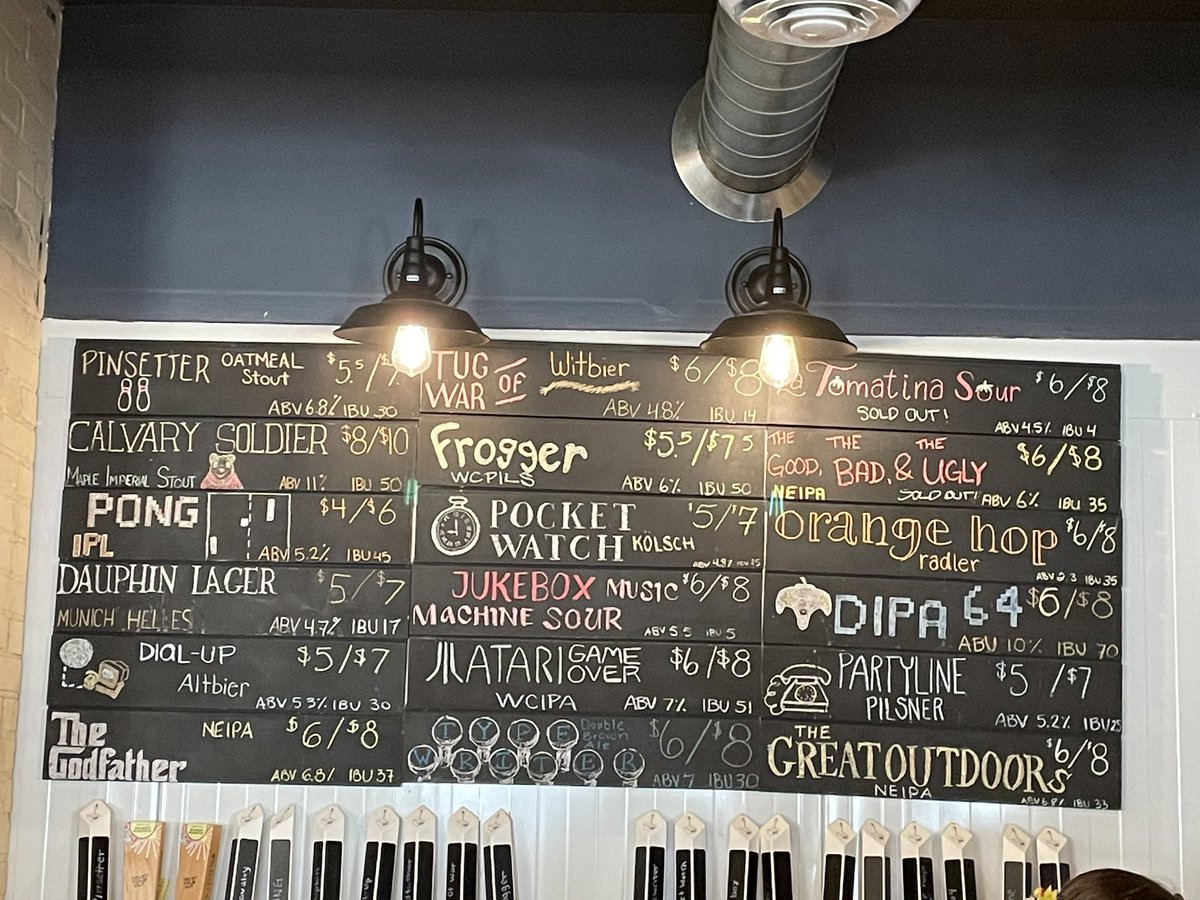 PINSETTER OATMEAL Stout $5.5/
ABV 6.8% IBU 30
CALVARY SOLDIER $8/$10
MAPLE IMPERIAL STOUT ABV 11% IBU 50
PONG $4/$6
IPL ABV 5.2% IBU 45
DAUPHIN LAGER $5/$7
MUNICH HELLES ABV 4.7% IBU 17
DIAL-UP $5/$7
Altbier
ABV 5.3% IBU 30
The Godfather NEIPA $6/$8
ABV 6.8% IBU 37
TUG OF WAR Witbier $6/$8
ABV 4.8% IBU 14
Frogger $5.5/$7.5
WCPILS ABV 6% IBU 50
POCKET $5/$7
WATCH KÖLSCH
ABV 4.9%
JUKEBOX MUSIC $6/$8
MACHINE SOUR ABV 5.5 IBU 5
ATARI GAME OVER $6/$8
WCIPA ABV 7% IBU 51
TYPE WRITER Double Brown Ale $6/$8
ABV 7 IBU 30
Tomatina Sour $6/$8
SOLD OUT!
ABV 4.5% IBU 4
THE GOOD, THE BAD, & THE UGLY $6/$8
NEIPA SOLD OUT! ABV 6% IBU 35
orange hop $6/$8
radler
ABV 2.3 IBU 35
DIPA 64 $6/$8
ABV 10% IBU 70
PARTYLINE $5/$7
PILSNER
ABV 5.2% IBU 25
THE
GREAT OUTDOORS $6/$8
NEIPA
ABV 6.8% IBU 33